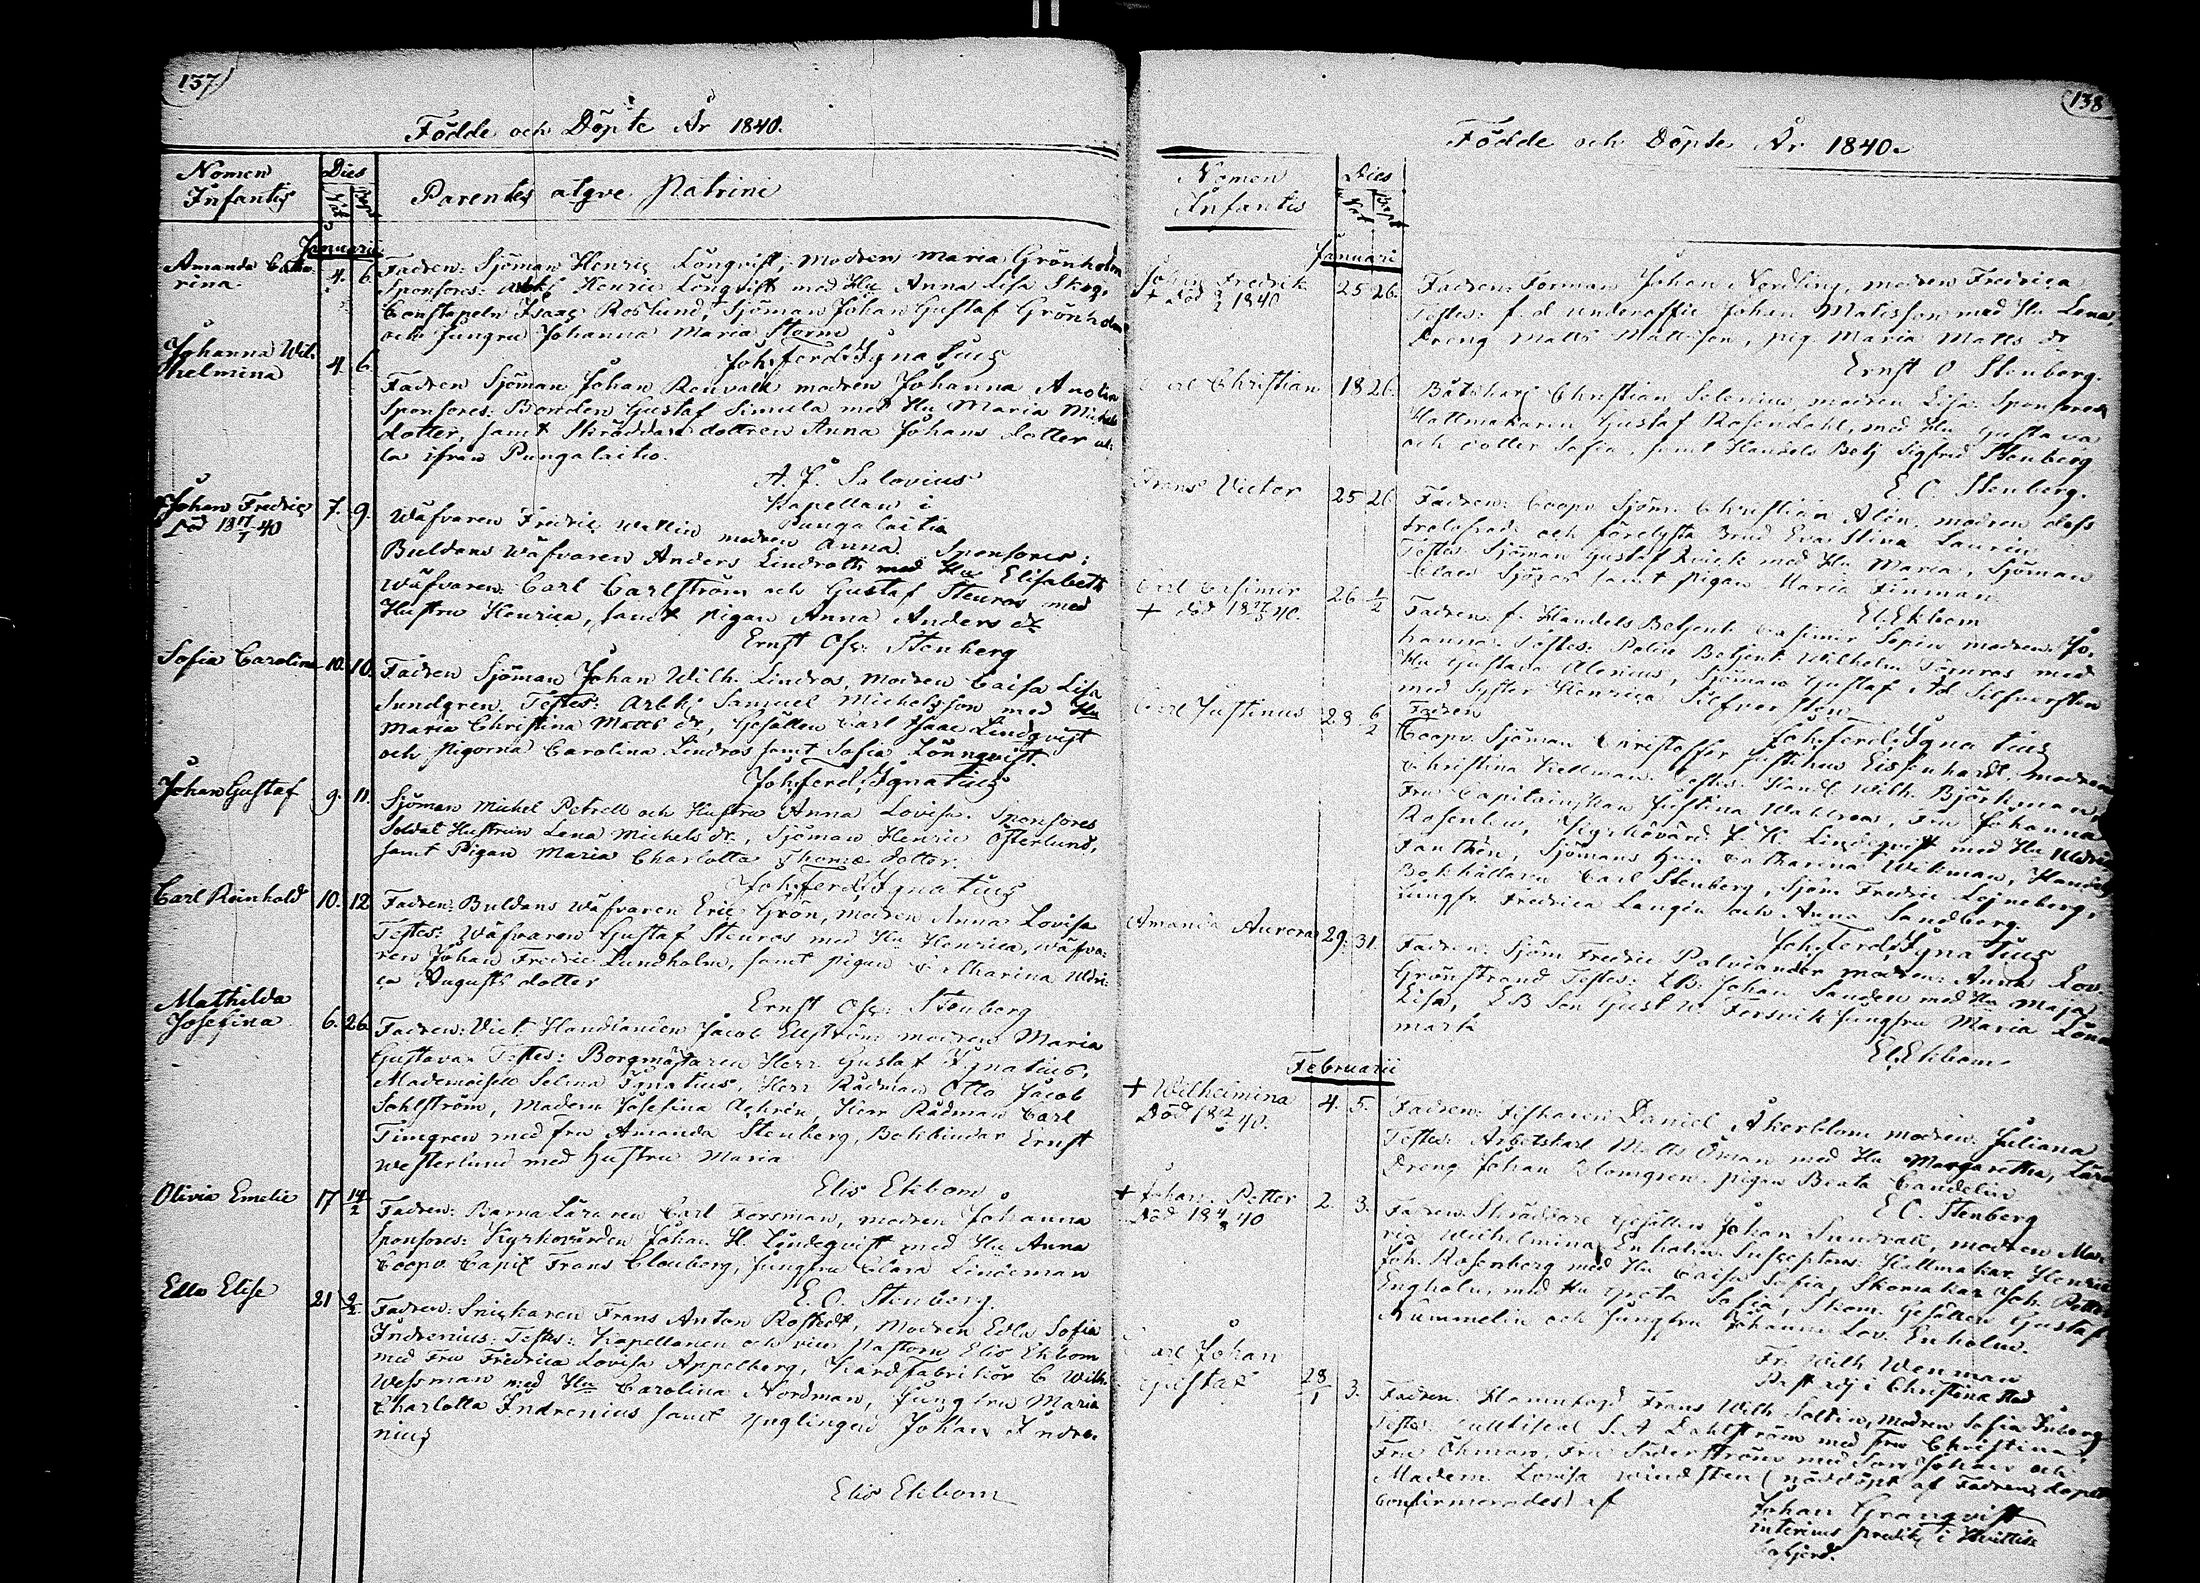 137
Födde och Döpte År 1840.
Nomen Infantis
Dies
Nat
Bapt
Parentes atqve Patrini
Januarii
Amanda Catha
rina.
4. 6.
Fadren: Sjöman Henric Lönqvist, modren Maria Grönholm
Sponsores: Arbk Henric Lönqvist med Hu Anna Lisa Skog,
Constapeln Isaac Roslund, Sjöman Johan Gustaf Grönholm
och Jungru Johanna Maria Storm
Joh: Ferd: Ignatius
Johanna Wil
helmina
4. 6.
Fadren Sjöman Johan Renvall modren Johanna
Sponsores: Bonden Gustaf Simula med Hu Maria Michels
dotter, samt Skräddare dottren Anna Johans dotter al
la ifrån Pungalaitio.
A. F. Salovius
Kapellan i
Pungalaitio
Johan Fredric
Död 18 17/1 40
7. 9.
Wäfvaren Fredric Wallin modren Anna. Sponsores:
Buldans Wäfvaren Anders Lindroth med Hu Elisabeth
Wäfvaren Carl Carlström och Gustaf Stenros med
Hustru Henrica, samt pigan Anna Anders dr
Ernst Osc: Stenberg
Sofia Carolina
10. 10.
Fadren Sjöman Johan Wilh. Lindros, modren Caisa Lisa
Sundgren. Testes: Arbk: Samuel Michelsson med Hu
Maria Christina Matts dr, Gesällen Carl Isaac Lindqvist
och pigorna Carolina Lindros samt Sofia Lönnqvist.
Joh: Ferd: Ignatius
Johan Gustaf
9. 11.
Sjöman Michel Petrell och Hustru Anna Lovisa. Sponsores
Soldat Hustrun Lena Michels dr, Sjöman Henric Österlund,
samt Pigan Maria Charlotta Thomæ dotter.
Joh: Ferd: Ignatius
Carl Reinhold
10. 12
Fadren: Buldans Wäfvaren Eric Grön, modren Anna Lovisa
Testes: Wäfvaren Gustaf Stenros med Hu Henrica, Wäfva
ren Johan Fredric Lundholm, samt pigan Catharina Ulri
ca Augusts dotter
Ernst Osc: Stenberg
Mathilda
Josefina
6. 26.
Fadren: Vict. Handlanden Jacob Ellström modren Maria
Gustava. Testes: Borgmästaren Herr Gustaf Ignatius,
Mademoiselle Selma Ignatius, Herr Rådman Otto Jacob
Sohlström, Madem Josefina Achrén, Herr Rådman Carl
Timgren med fru Amanda Stenberg, Bokbindar Ernst
Westerlund med Hustru Maria
Elis Ekbom
Olivia Emelie
17 14/2
Fadren: Barna Läraren Carl Forsman, modren Johanna
Sponsores: Kyrkovärden Johan H. Lindeqvist med Hu Anna
Coopv. Capit Frans Clouberg, Jungfru Clara Lindeman
E. O. Stenberg.
Edla Elise
21 9/2
Fadren: Snickaren Frans Anton Rostedt, Modren Edla Sofia
Indrenius: Testes: Kapellanen och vice Pastorn Elis Ekbom
med Fru Fredrica Lovisa Appelberg, Kardfabrikör C Wilh.
Wessman med Hu Carolina Nordman, Jungfru Maria
Charlotta Indrenius samt ynglingen Johan Indre
nius
Elis Ekbom
138
Födde och Döpte År 1840.
Nomen
Infantis
Dies
Januarii
Johan Fredrik
+ död 1840
25 26.
Fadren: Forman Johan Nordling, modren Fredrica
Testes: f. d. underofficr Johan Matisson med Hu Lena,
Dreng Matts Mattsson, pig Maria Matts dr
Ernst O Stenberg.
Christian
18 26.
Båtskarl Christian Selenius modren Lisa: Sponsores
Hattmakaren Gustaf Rosendahl, med Hu Gustava
och dotter Sofia, samt Handels Betj Sigfrid Stenberg
E. O. Stenberg.
Frans Victor
25 26
Fadren: Coopv. Sjöm: Christian Alén, modren dess
trolofvade och förelysta Brud Eva Stina Laurin
Testes: Sjöman Gustaf Qvick med Hu Maria, Sjöman
Claes Sjöros samt pigan Maria Finman
El. Ekbom
Carl Casimir
26 1/2
Fadren: f. Handels Betjent Casimir Sepin, modren Jo
hanna. Testes: Police Betjent Wilhelm Törnros med
Hu Gustava Alenius, Sjöman Gustaf Ad Silfversten
med Syster Henrica Silfversten
Joh: Ferd: Ignatius
Carl Justinus
28 6/2
Fadren
Coopv. Sjöman Christoffer Justinus Eisenhardt, modren
Christina Kellman. Testes: Wilh. Björkman,
Fru Capitainskan Justina Wahlroos, Fru Johanna
Rosenlew, Kyrkovärd J. H. Lindeqvist med Hu Ulrica
Fanthén, Sjömans Hun Catharina Wikman, Handels
Bokhållaren Carl Stenberg, Sjöm Fredric Lejneberg,
Jungfr. Fredrica Langén och Anna Sandberg.
Joh: Ferd: Ignatius
Amanda Aurora
29. 31.
Fadren: Sjöm Fredric Palviander modren: Anna Lov.
Grönstrand Testes: LB. Johan Sandén med Hu Maja
Lisa, LB Son Gust W. Forsvik Jungfru Maria Löne
mark
El. Ekbom
Februarii
+ Wilhelmina
4. 5.
Fadren: Fiskaren Daniel Åkerblom modren: Juliana
Testes: Arbetskarl Matts Öman med Hu Margaretha,
Dreng Johan Blomgren, pigan Beata Candelin
E O. Stenberg
+ Johan Petter
Död 18 4/8 40
2. 3.
Fadren Skräddare Gesällen Johan Sundvall, modren Ma
ria Wilhelmina Enholm. Susceptores: Hattmakar. Henric
Joh. Rosenberg med Hu Caisa Sofia, Skomakar Joh. Petter
Engholm, med Hu Greta Sofia, Skom. Gesällen Gustaf
Nummelin och Jungfru Johanna Lov. Enholm.
Fr. Wilh Wenman
Past adj i Christinæstad
Carl Johan
Gustaf
28/1 3.
Fadren: Hamnfogd Frans Wilh Soldin, modren Sofia Enberg
Testes: Cultiseur S. A Dahlström med Fru Christina,
Fru Öhman, Fru Söderström med Son Johan och
Madem. Lovisa Windsten (nöddöpt af Fadren, dopet
confirmerades) af
Johan Granqvist
interims predik i Hvittis
bofjerd.